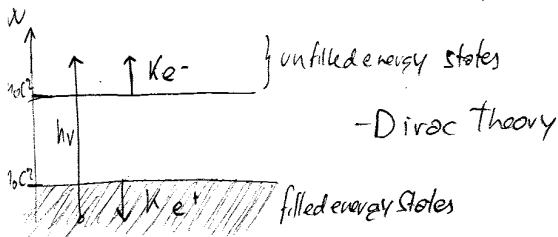 W
Ke-
unfilled energy states
-Dirac Theory
hν
Ke+
filled energy states